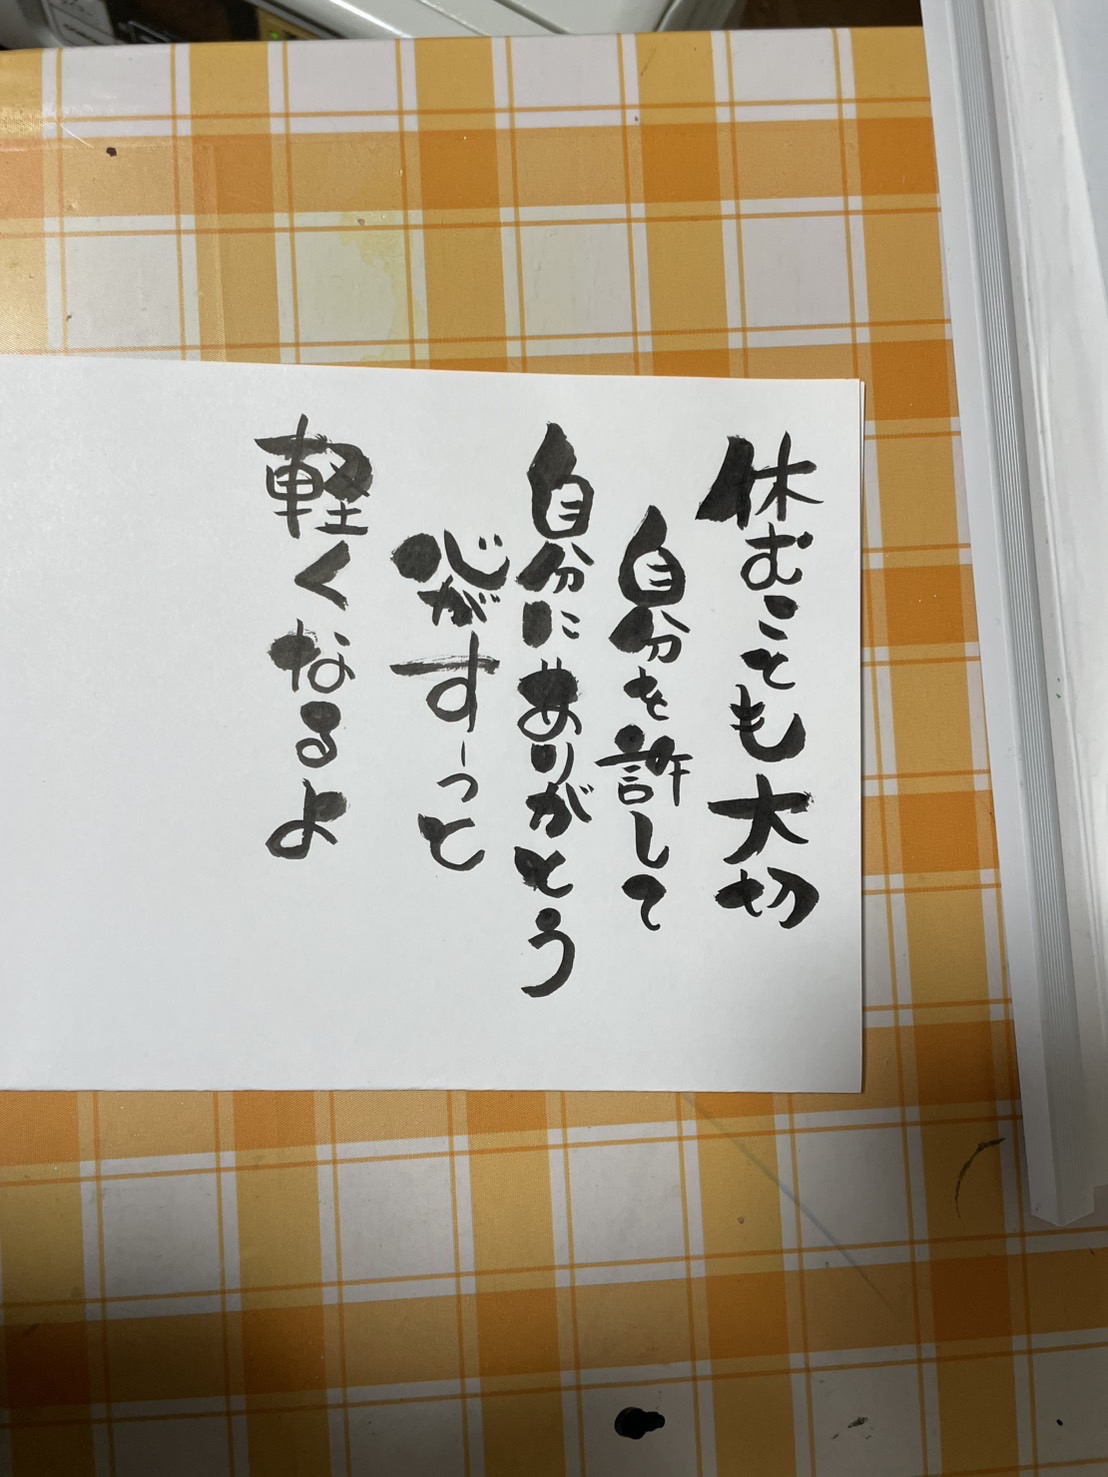 休むことも大切
自分を許して
自分にありがとう
心がすーっと
軽くなるよ